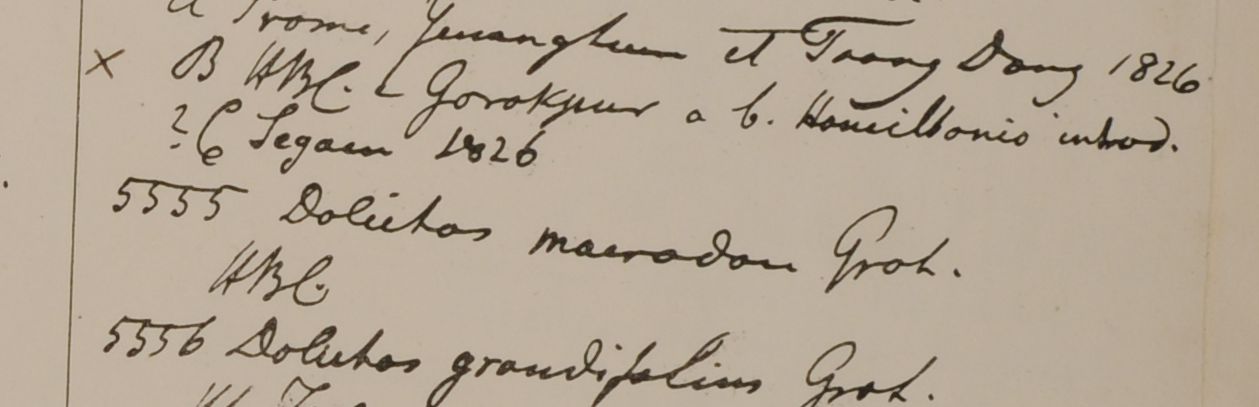 A Prome, Yenanghuen et Taong Dong 1826
× B HBC. - Gorakpur a b. Hamiltonio introd.
? C Segaen 1826
5555 Dolichos macrodon Grah.
HBC
5556 Dolichos grandifolius Grah.